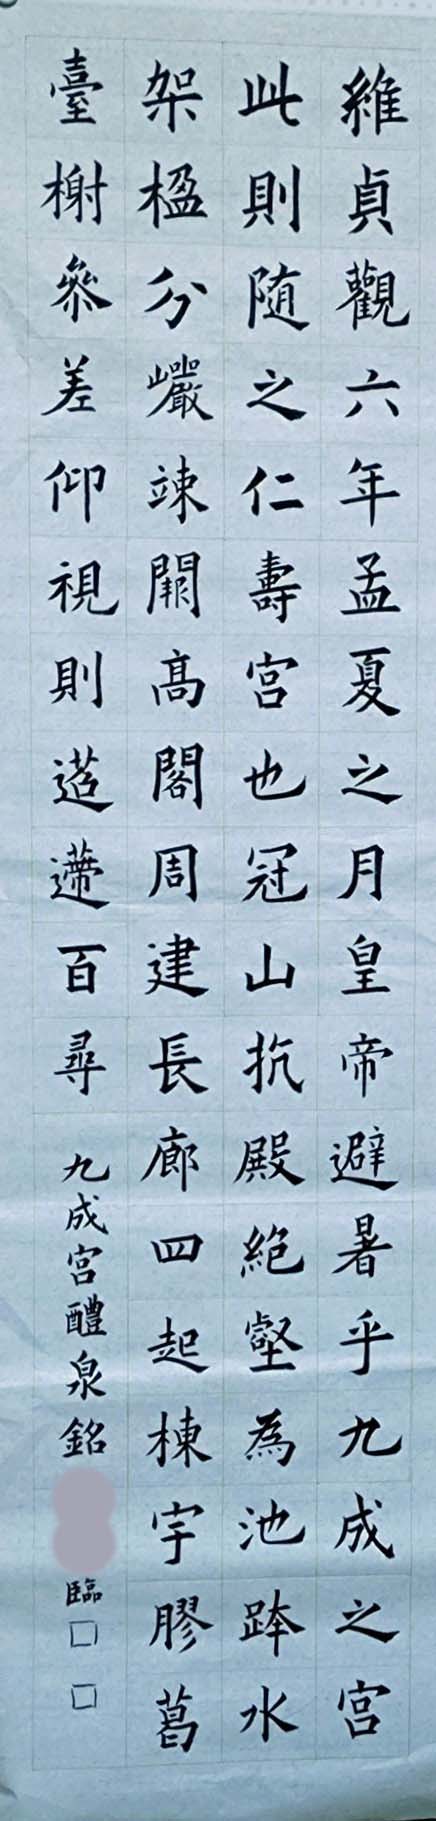 維貞觀六年孟夏之月皇帝避暑乎九成之宮
此則随之仁壽宮也冠山抗殿絶壑為池跨水
架楹分巖竦闕高閣周建長廊四起棟宇膠葛
臺榭參差仰視則迢遰百尋
九成宮醴泉銘
臨